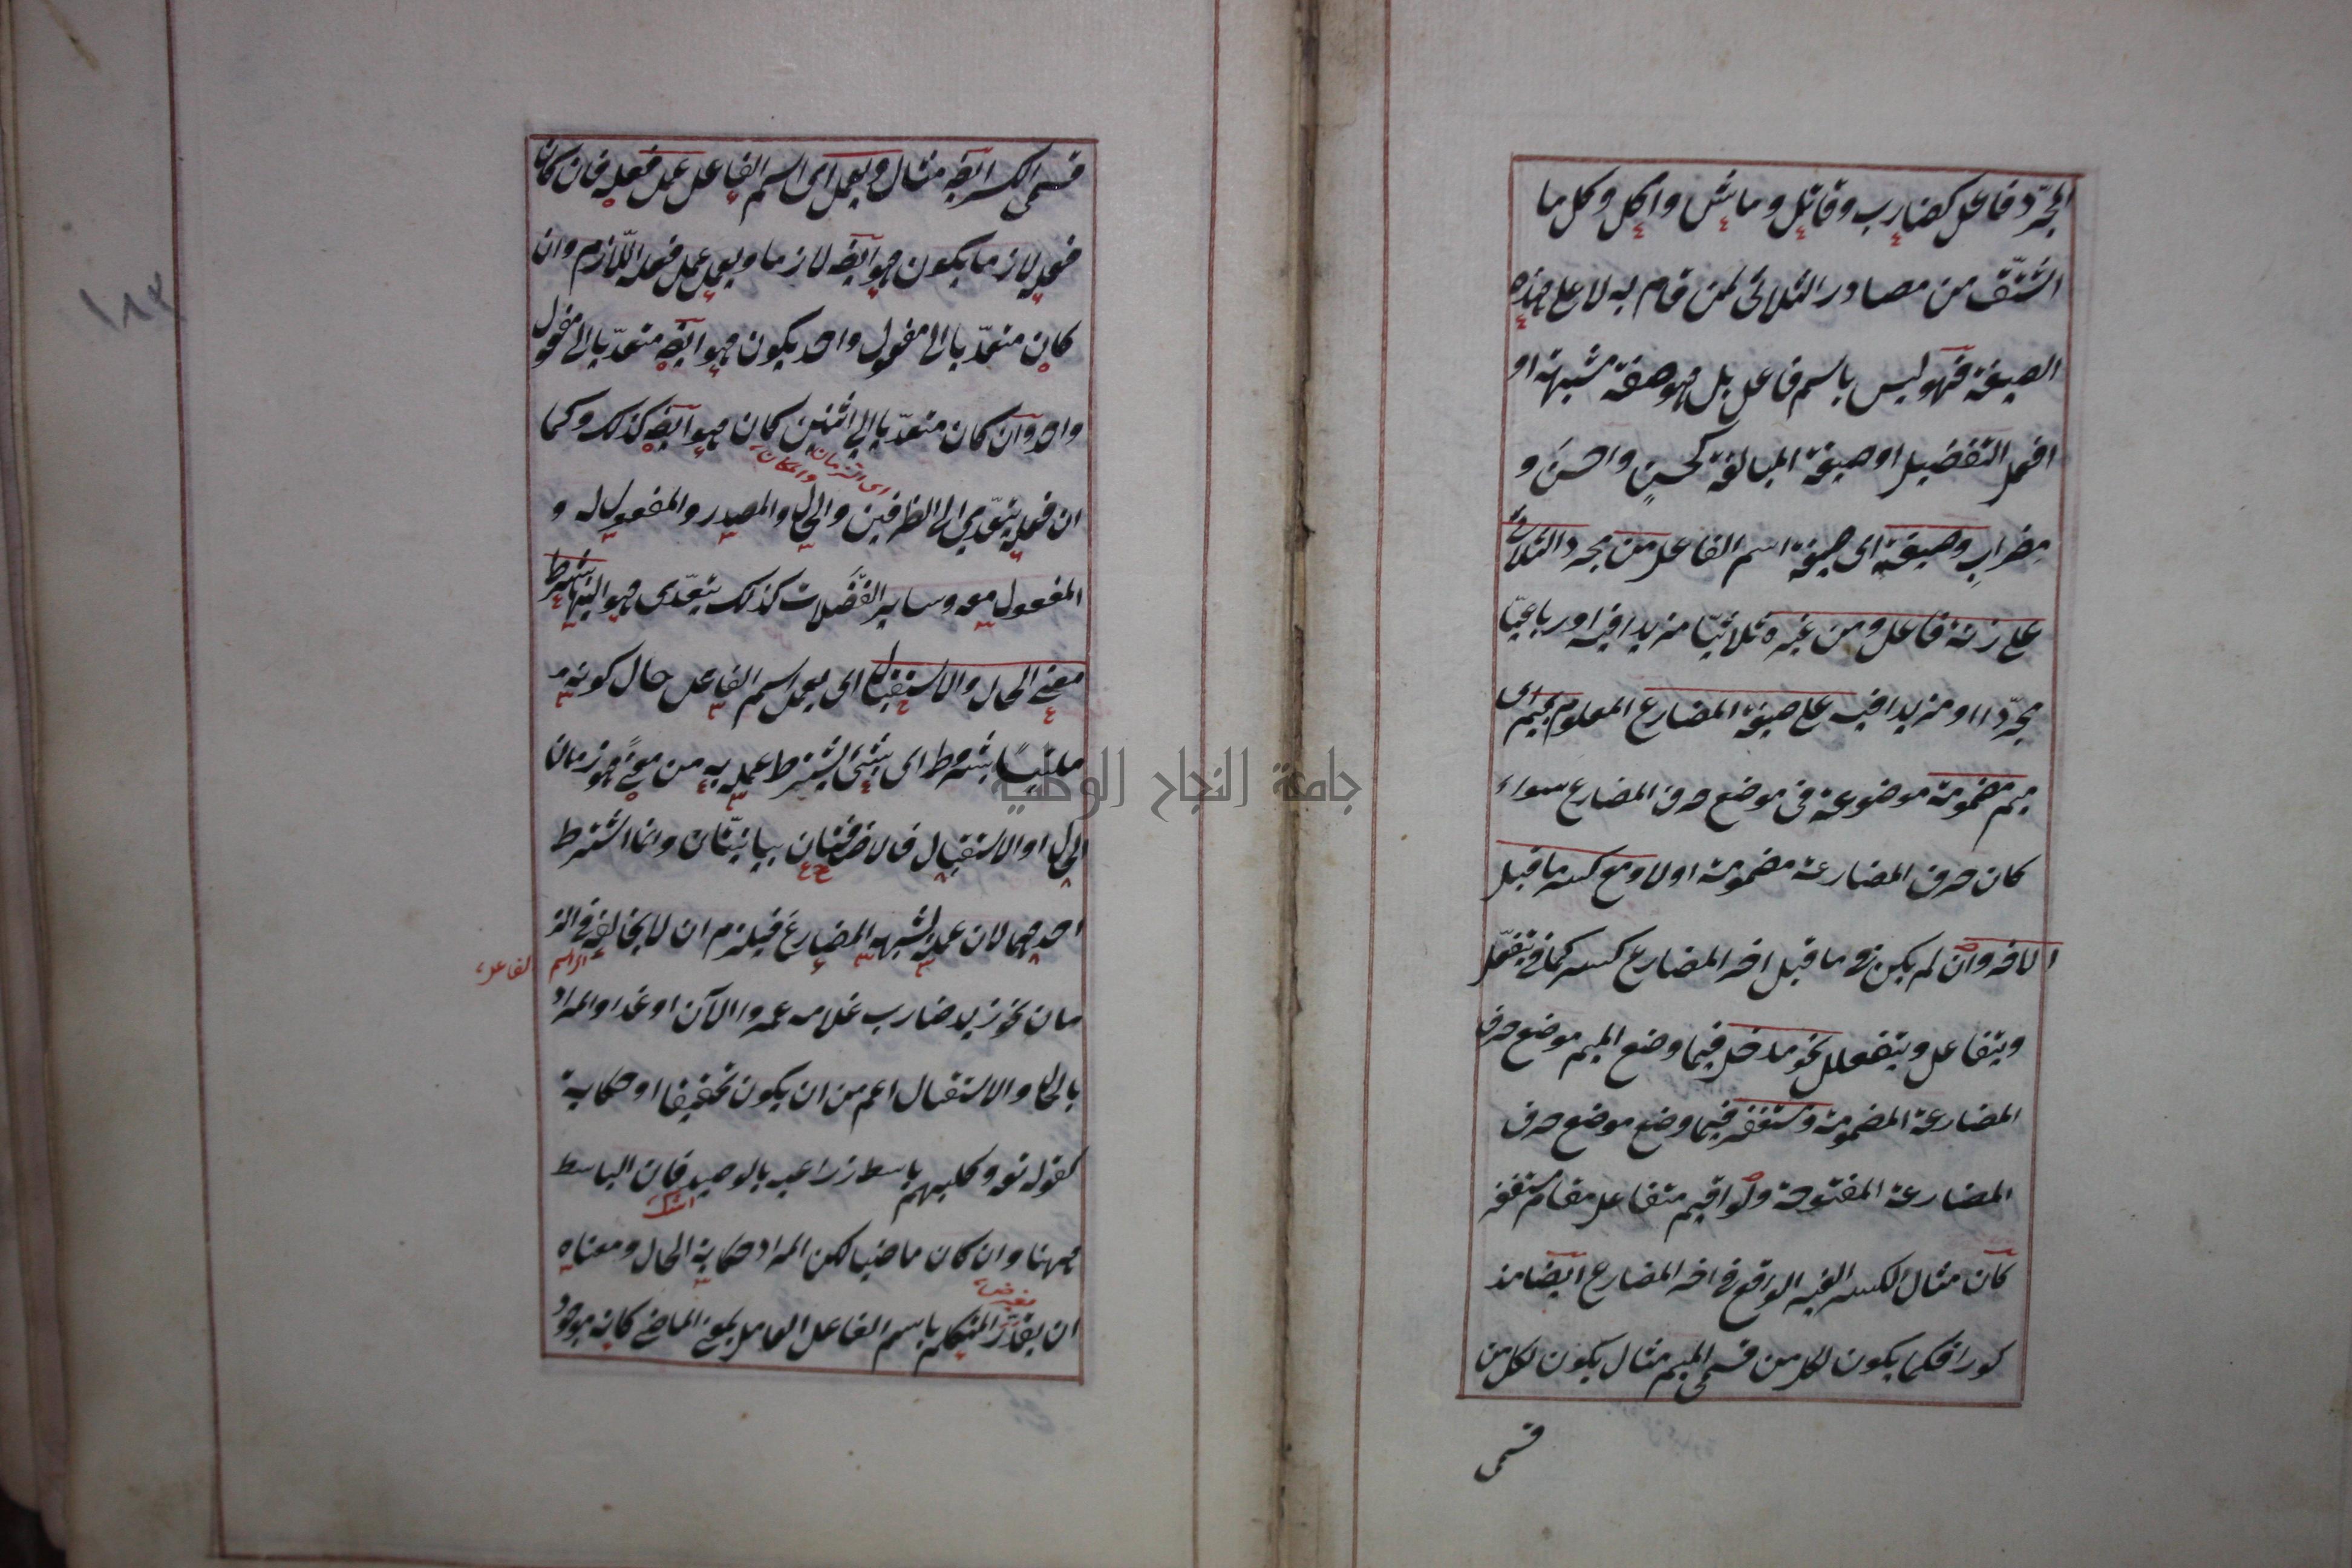 المجرّد فاعل كضارب وقاتل وماش واكل وكل ما
اشتقّ من مصادر الثلاثى لمن قام به لا على هذه
الصيغة فهو ليس باسم فاعل بل هو صفة مشبهة او
افعل التفضيل او صيغة المبالغة كحسن واحسن و
مضراب وصيغته اى صيغة اسم الفاعل من مجرد الثلاثى
على زنة فاعل ومن غيره ثلاثيّا مزيدا فيه او رباعيّا
مجرّدا او مزيدا فيه على صيغة المضارع المعلوم بميم اى
ميم مضمومة موضوعة فى موضع حرف المضارع سواء
كان حرف المضارعة مضمومة اولا ومع كسر ما قبل
الاخر وان لم يكن فى ما قبل اخر المضارع كسر كما فى يتفعّل
ويتفاعل ويتفعلل نحو مدخل فيما وضع الميم موضع حرف
المضارعة المضمومة ومستغفر فيما وضع موضع حرف
المضارعة المفتوحة ولو اقيم متفاعل مقام مستغفر
كان مثال الكسر الغير الواقع فى اخر المضارع ايضا مذ
كورا فكما يكون لكل من قسمى الميم مثال يكون لكل من
قسمى
قسمى الكسر ايضه مثال ويعمل اى اسم الفاعل عمل فعله فان كان
فعله لازما يكون هو ايضه لازما ويعمل عمل فعله اللازم وان
كان متعدّيا الى مفعول واحد يكون هو ايضه متعدّيا الى مفعول
واحد وان كان متعدّيا الى اثنين كان هو ايضه كذلك وكما
اى الزمان والمكان
ان فعله يتعدى الى الظرفين والحال والمصدر والمفعول له و
المفعول معه وساير الفضلات كذلك يتعدى هو اليها بشرط
معنى الحال والاستقبال اى يعمل اسم الفاعل حال كونه
ملتبسا بشروط اى بشئ يشترط عمله به من معنى هو زمان
الحال او الاستقبال فالاضافتان بيانيّتان وانما اشترط
احدهما لان عمله لشبه المضارع فيلزم ان لا يخالفه فى الز
اى اسم الفاعل
مان نحو زيد ضارب غلامه عمروا الآن او غدا والمراد
بالحال والاستقبال اعم من ان يكون تحقيقا او حكاية
كقوله تع وكلبهم باسط ذراعيه بالوصيد فان الباسط
ههنا وان كان ماضيا لكن المراد حكاية الحال ومعناه
ان يقدّر المتكلم باسم الفاعل العامل بمعنى الماضى كانه موجود
١٨٣
جامعة النجاح الوطنية